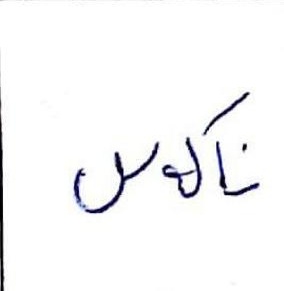 ناکوس